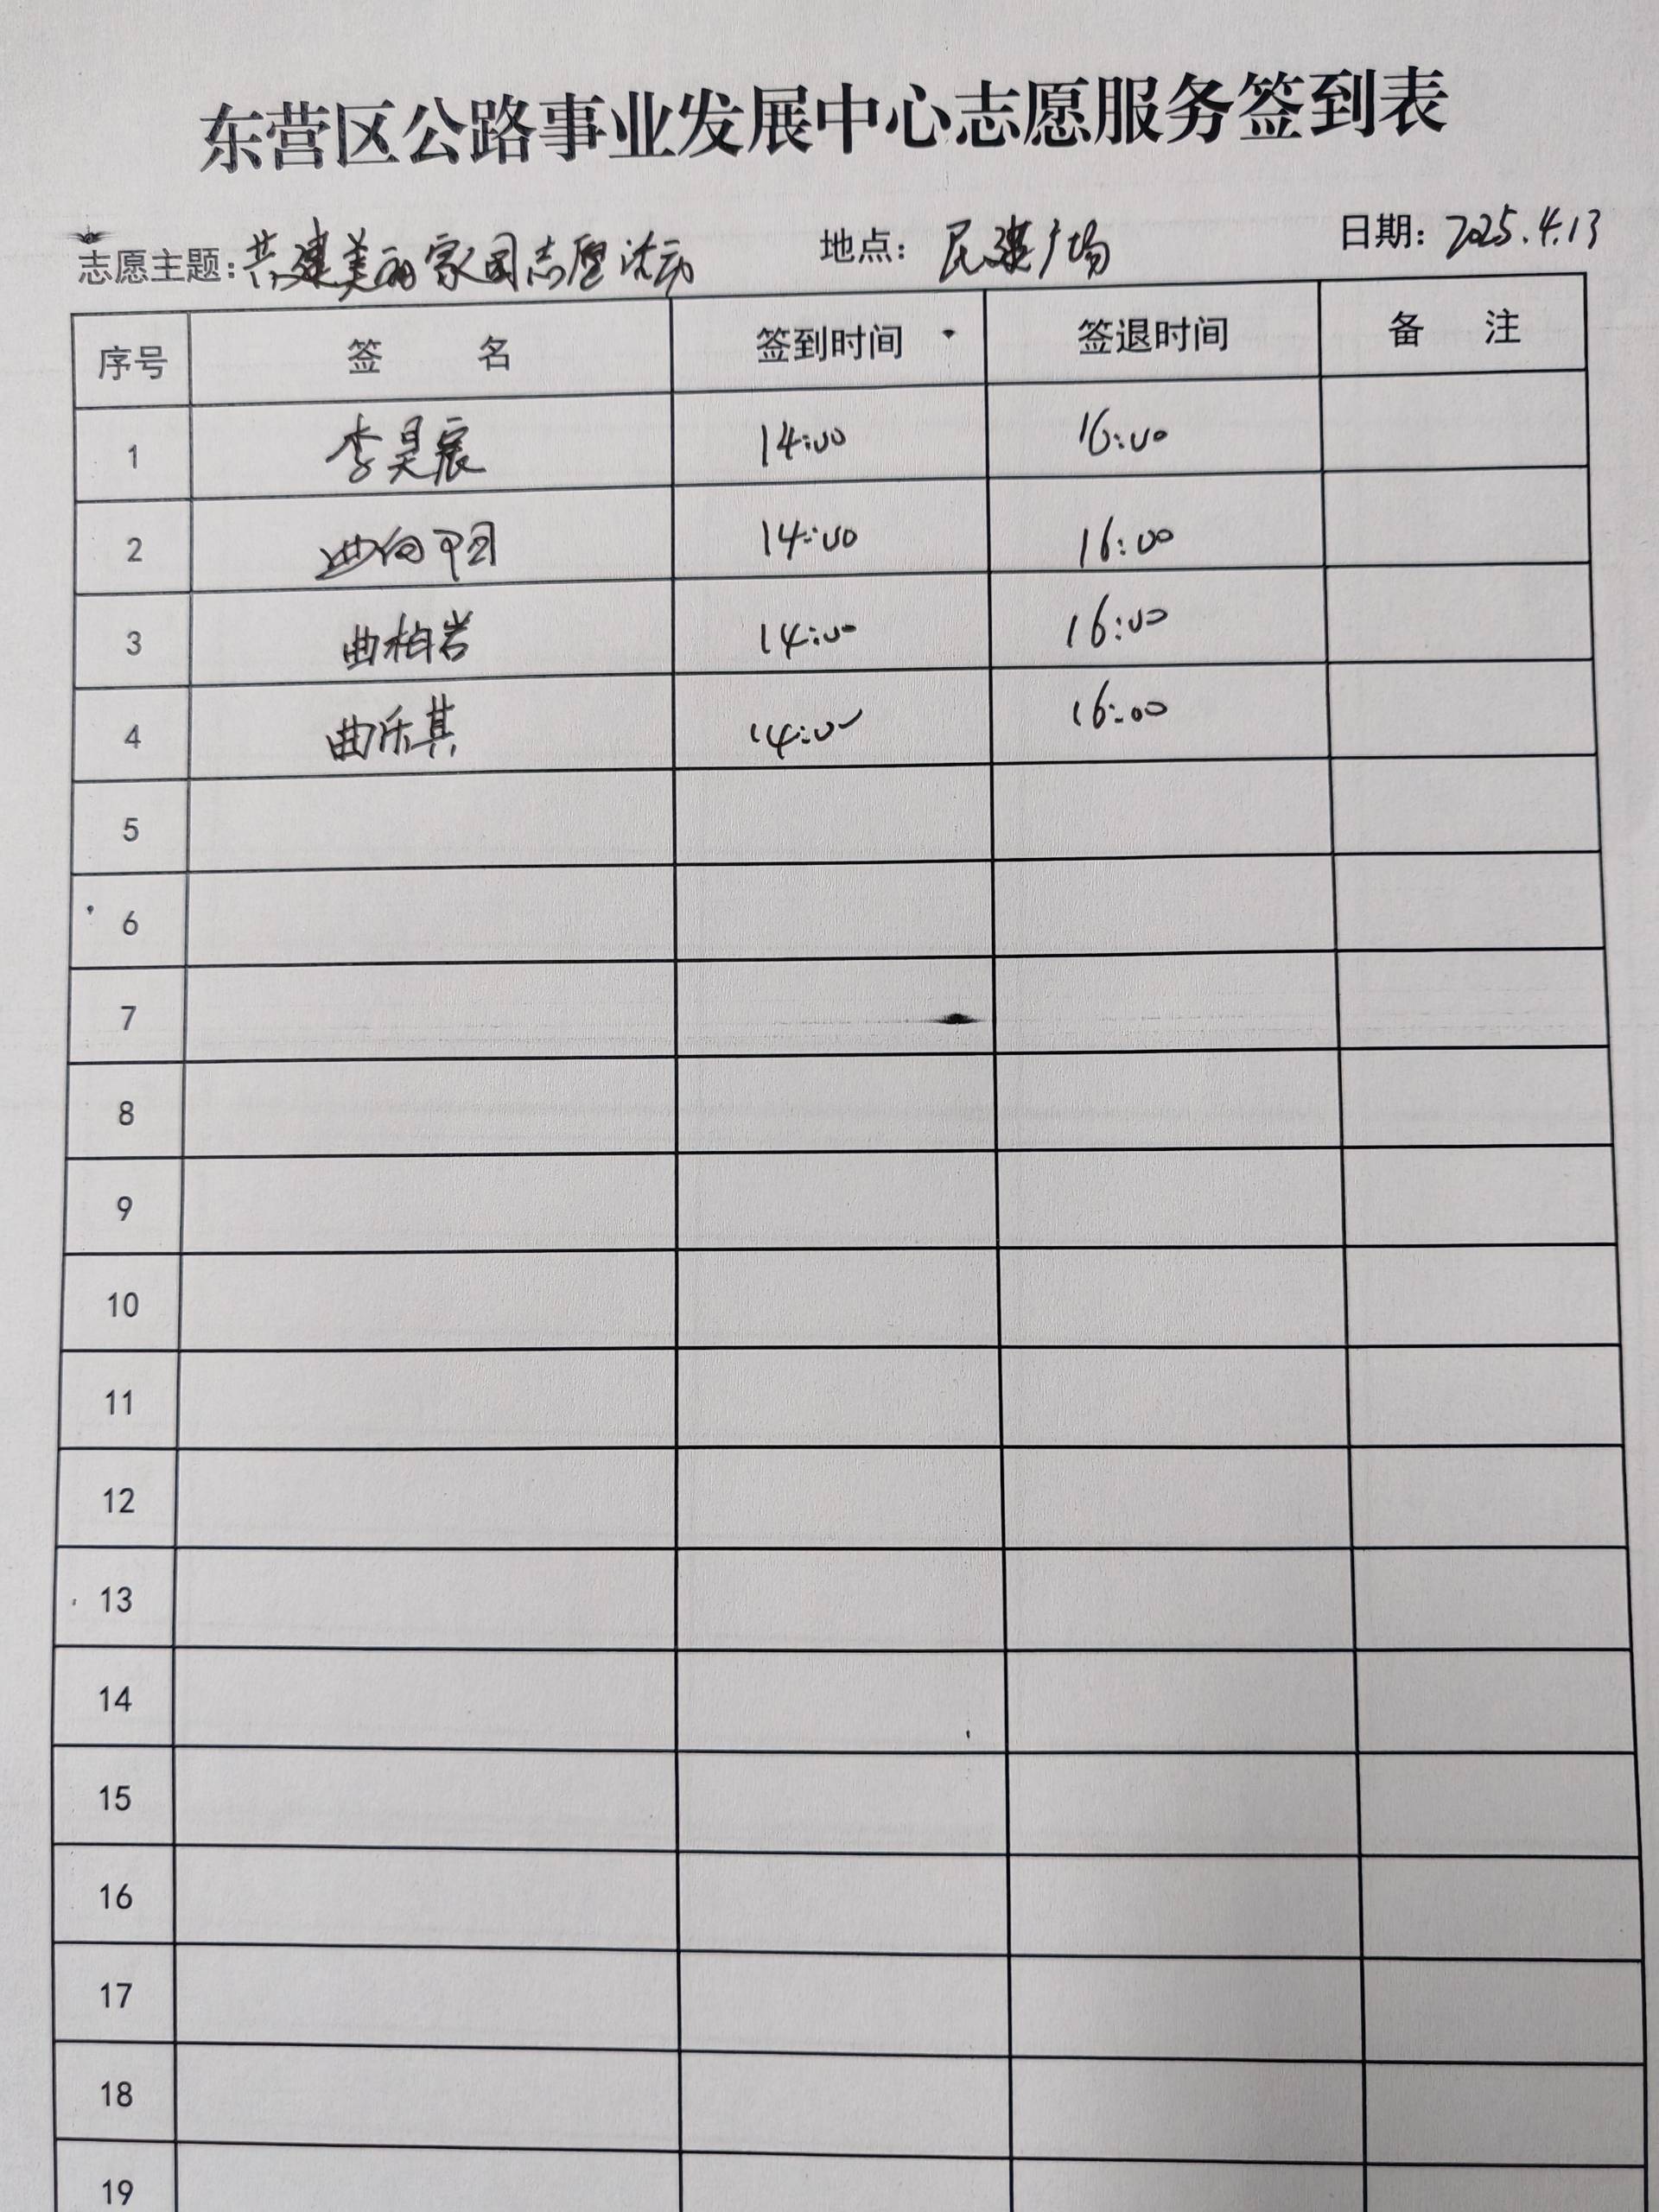 东营区公路事业发展中心志愿服务签到表
志愿主题：共建美丽家园志愿活动 地点：广场 日期：2025.4.13
序号 签 名 签到时间 签退时间 备 注
1 李昊宸 14:00 16:00
2 曲向阳 14:00 16:00
3 曲柏岩 14:00 16:00
4 曲乐其 14:00 16:00
5
6
7
8
9
10
11
12
13
14
15
16
17
18
19